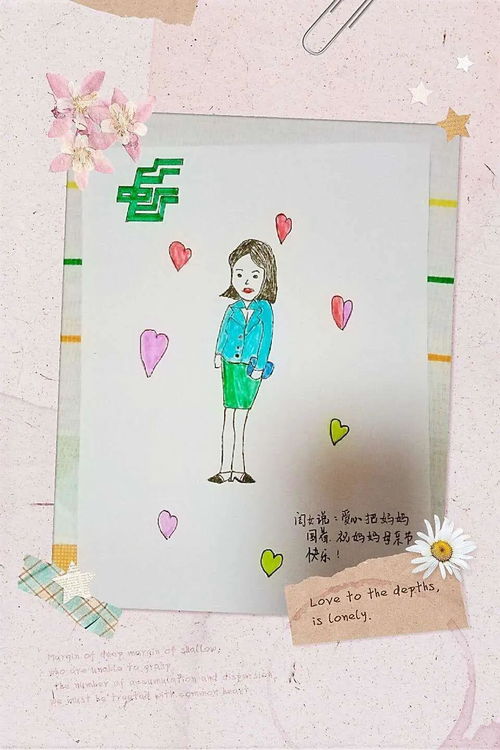 闺女说：爱心把妈妈
围着.祝妈妈母亲节
快乐！
Love to the depths,
is lonely.
Margin of deep margin of shallow,
who are unable to grasp
the number of accumulation and dispersion,
He must be treated with common heart.